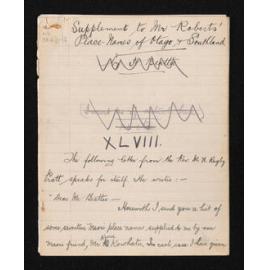 Supplement to Mr Roberts'
Place-Names of Otago & Southland
XLVIII.
The following letter from the Rev. M. A. Rugby
Pratt, speaks for itself. He writes:—
"Dear Mr Beattie —
Herewith I send you a list of
some Maori place names supplied to me by our
Maori friend, Mr In each case I have given